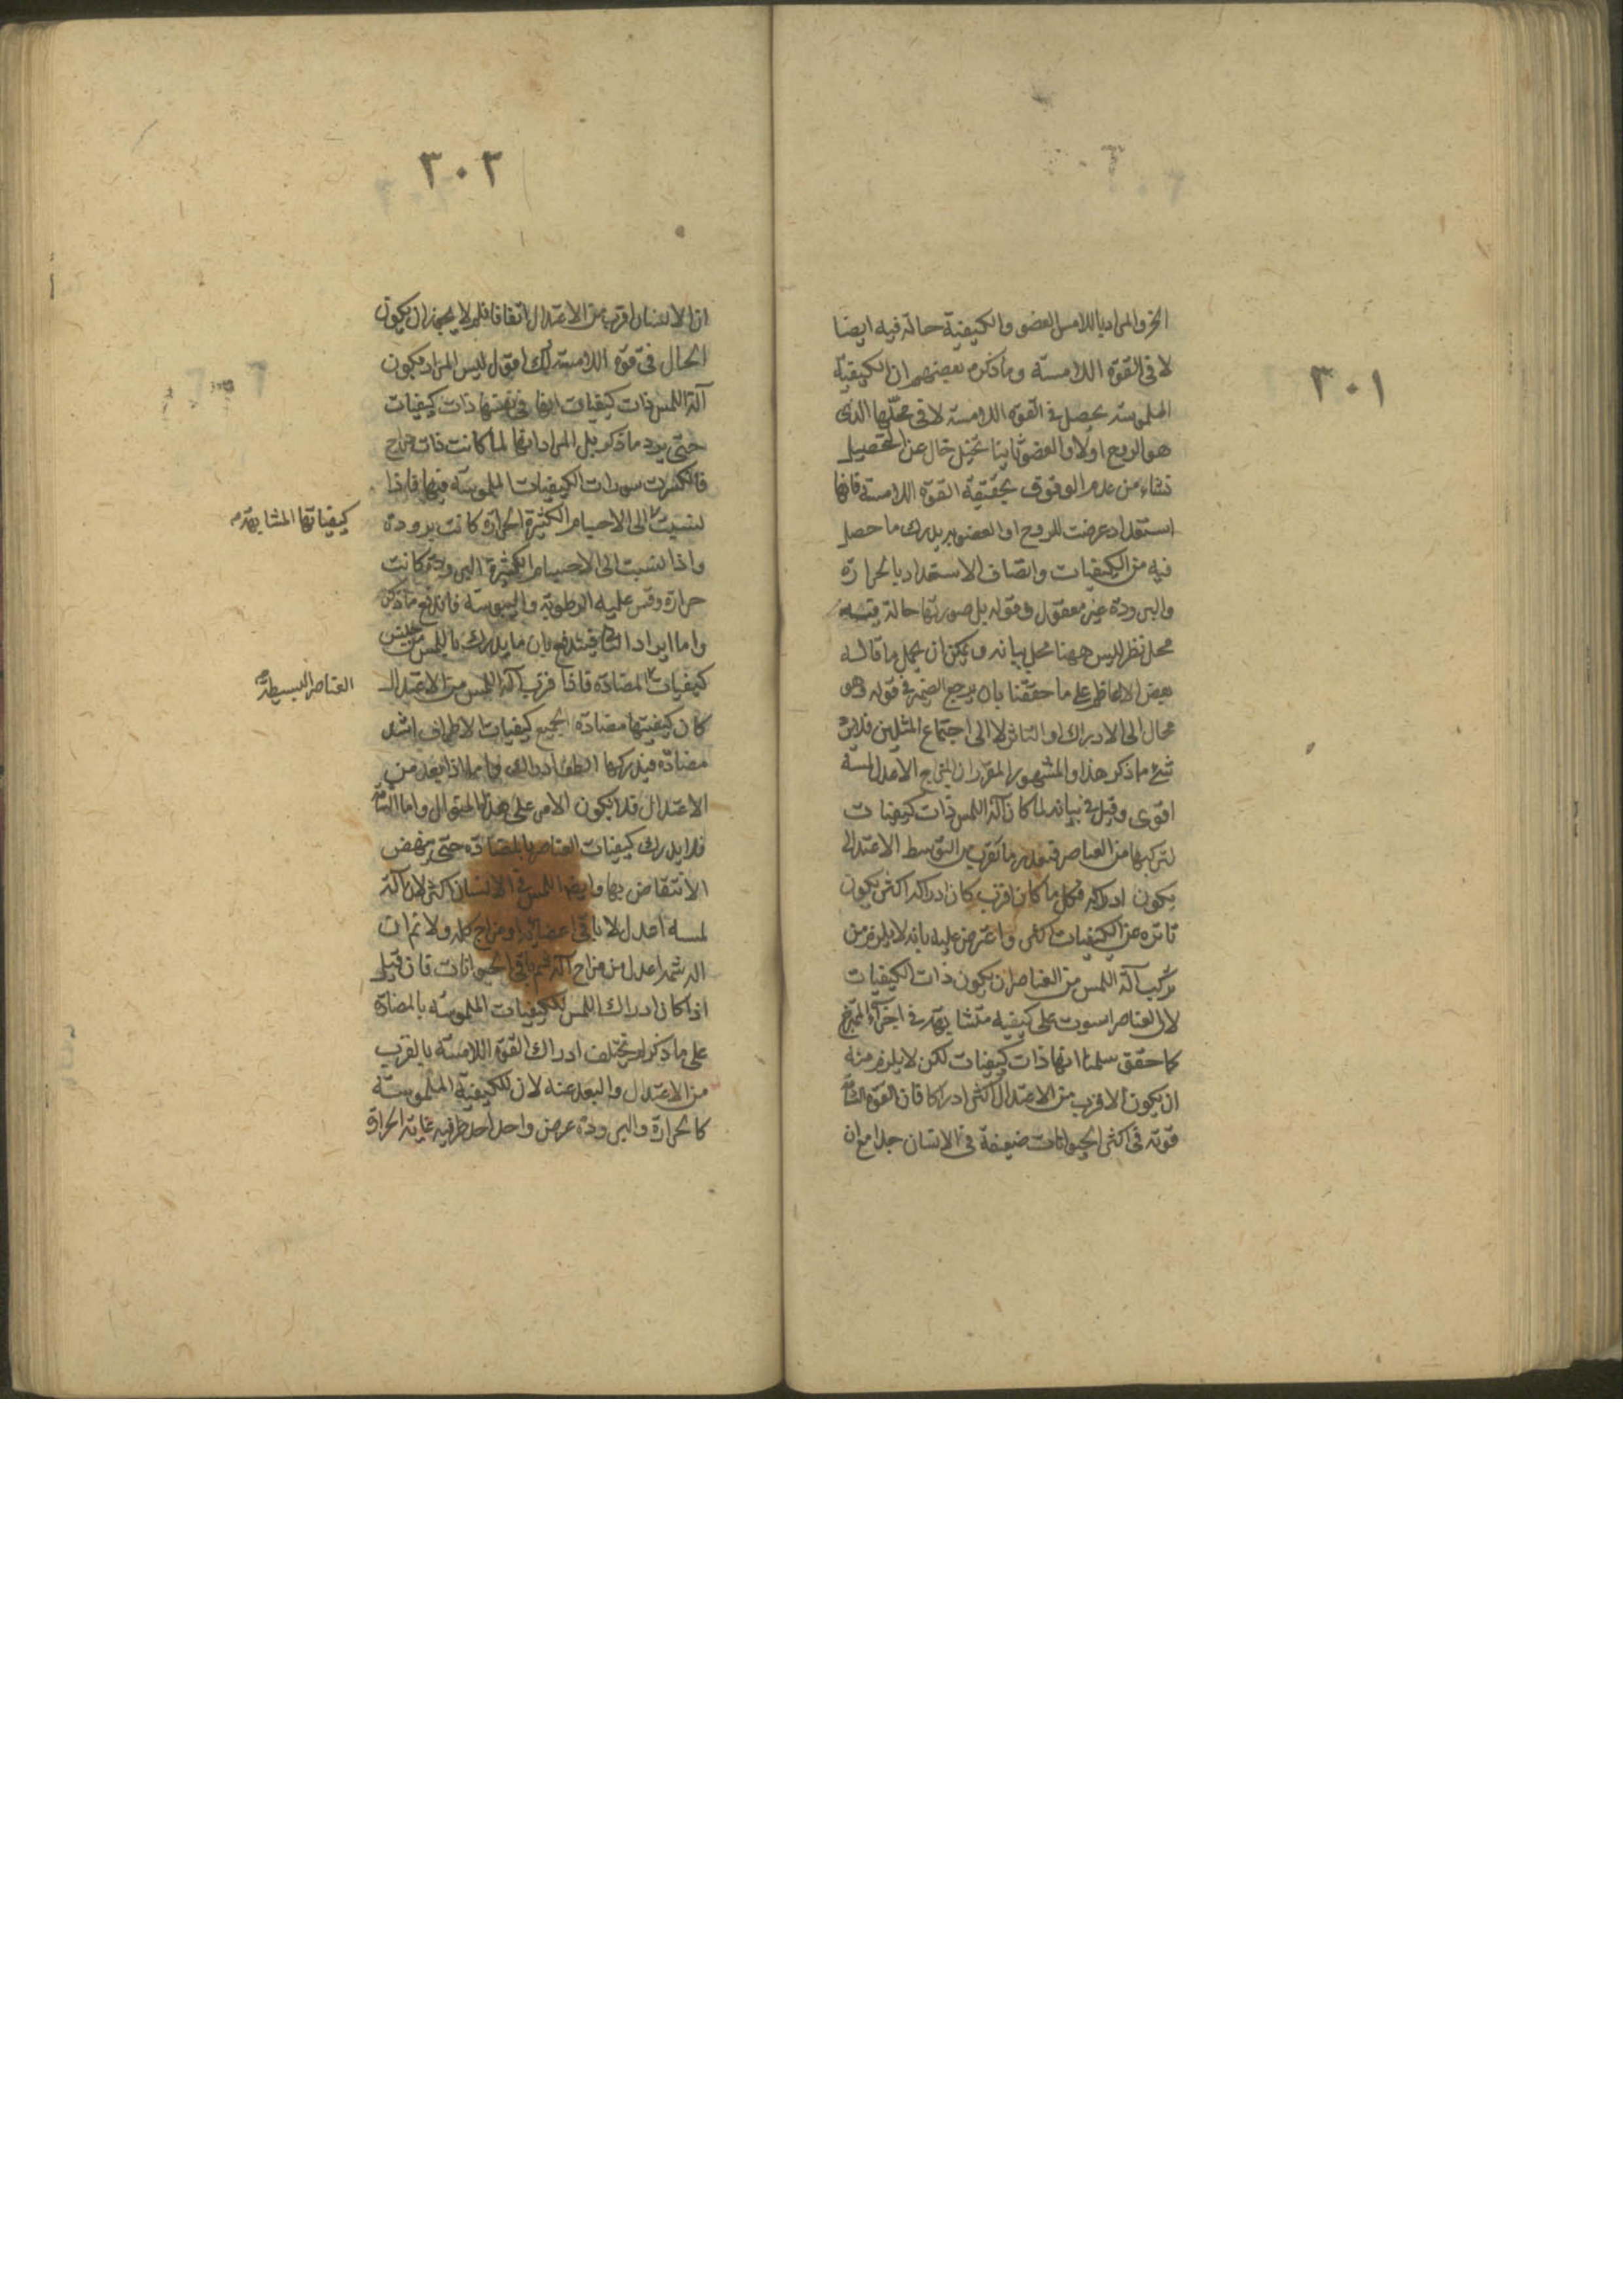 ٣٠١
الخ والمراد باللامس العضو والكيفية حالة فيه ايضا
لا فى القوة اللامسة وما ذكره بعضهم ان الكيفية
الملموسة يحصل فى القوة اللامسة لا فى محلها الذى
هو الروح اولا والعضو ثانيا تخيل خال عن التحصيل
نشاء من عدم الوقوف بحقيقة القوة اللامسة فانها
استعداد عرضت للروح او العضو به يدرك ما حصل
فيه من الكيفيات واتصاف الاستعداد بالحرارة
والبرودة غير معقول وقوله بل صورتها حالة فيه
محل نظر ليس ههنا محل بيانه ويمكن ان يحمل ما قاله
بعض الاعاظم على ما حققنا بان يرجع الضمير فى قوله وهو
محال الى الادراك او التاثر لا الى اجتماع المثلين فلا يرد
شئ ما ذكر هذا والمشهور المقرر ان المزاج الاعدل لمسه
اقوى وقيل فى بيانه لما كان آلة اللمس ذات كيفيات
لتركبها من العناصر فبقدر ما تقرب من التوسط الاعتدالى
يكون ادراكه فكل ما كان اقرب كان ادراكه اكثر يكون
تاثره عن الكيفيات اكثر واعترض عليه بانه لا يلزم من
تركيب آلة اللمس من العناصر ان يكون ذات الكيفيات
لان العناصر استوت على كيفية متشابهة فى اجزاء الممتزج
كما حقق سلمنا انها ذات كيفيات لكن لا يلزم منه
ان يكون الاقرب من الاعتدال اكثر ادراكا فان القوة الشامة
قوية فى اكثر الحيوانات ضعيفة فى الانسان جدا مع ان
٣٠٢
ان الانسان اقرب من الاعتدال اتفاقا فلم لا يجوز ان يكون
الحال فى قوة اللامسة كك اقول ليس المراد بكون
آلة اللمس ذات كيفيات انها فى نفسها ذات كيفيات
حتى يرد ما ذكر بل المراد انها لما كانت ذات مزاج
فانكسرت سورات الكيفيات الملموسة فيها فاذا
نسبت الى الاجسام الكثيرة الحرارة كانت برودة
كيفياتها المتشابهة
واذا نسبت الى الاجسام الكثيرة البرودة كانت
حرارة وقس عليه الرطوبة واليبوسة فاندفع ما ذكر
واما ايراد الشم فيندفع بان ما يدرك باللمس من جنس
كيفيات المتضادة فاذا قرب آلة اللمس من الاعتدال
العناصر البسيطة
كان كيفيتها مضادة لجميع كيفيات الاطراف اشد
مضادة فيدركها الطف ادراك واما اذا بعد من
الاعتدال فلا يكون الامر على هذا المنوال واما الشامة
فلا يدرك كيفيات العناصر بالمضادة حتى ينهض
الانتقاض بها وايضا اللمس فى الانسان اكثر لان آلة
لمسه اعدل لا باقى اعضائه او مزاج كله ولا نم ان
آلة شمه اعدل من مزاج آلة شم باقى الحيوانات فان قيل
اذا كان ادراك اللمس للكيفيات الملموسة بالمضادة
على ما ذكر لم تختلف ادراك القوة اللامسة بالقرب
من الاعتدال والبعد عنه لان للكيفية الملموسة
كالحرارة والبرودة عرض واحد احد طرفيه غاية الحرارة